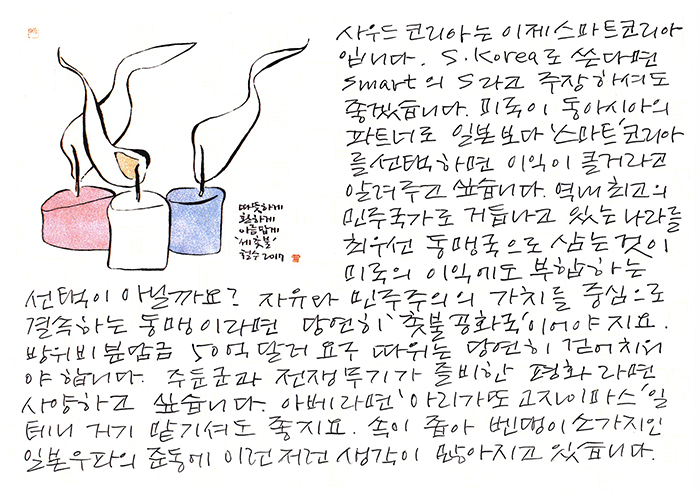 사우드 코리아는 이제 스마트코리아
입니다. S.Korea로 쓴다면
smart의 S라고 주장하셔도
좋겠습니다. 미국이 동아시아의
파트너로 일본보다 '스마트'코리아
를 선택하면 이익이 클거라고
알려주고 싶습니다. 역내 최고의
민주국가로 거듭나고 있는 나라를
최우선 동맹국으로 삼는 것이
미국의 이익에도 부합하는
선택이 아닐까요? 자유와 민주주의의 가치를 중심으로
결속하는 동맹이라면 당연히 '촛불공화국'이어야지요.
방위비분담금 50억 달러 요구 따위는 당연히 걷어치워
야 합니다. 주둔군과 전쟁무기가 즐비한 평화라면
사양하고 싶습니다. 아베라면 '아리가또 고자이마스'일
테니 거기 맡기셔도 좋지요. 속이 좁아 벤댕이소가지인
일본우파의 준동에 이런저런 생각이 많아지고 있습니다.
따뜻하게
환하게
아름답게
'세 촛불'
철수 2017